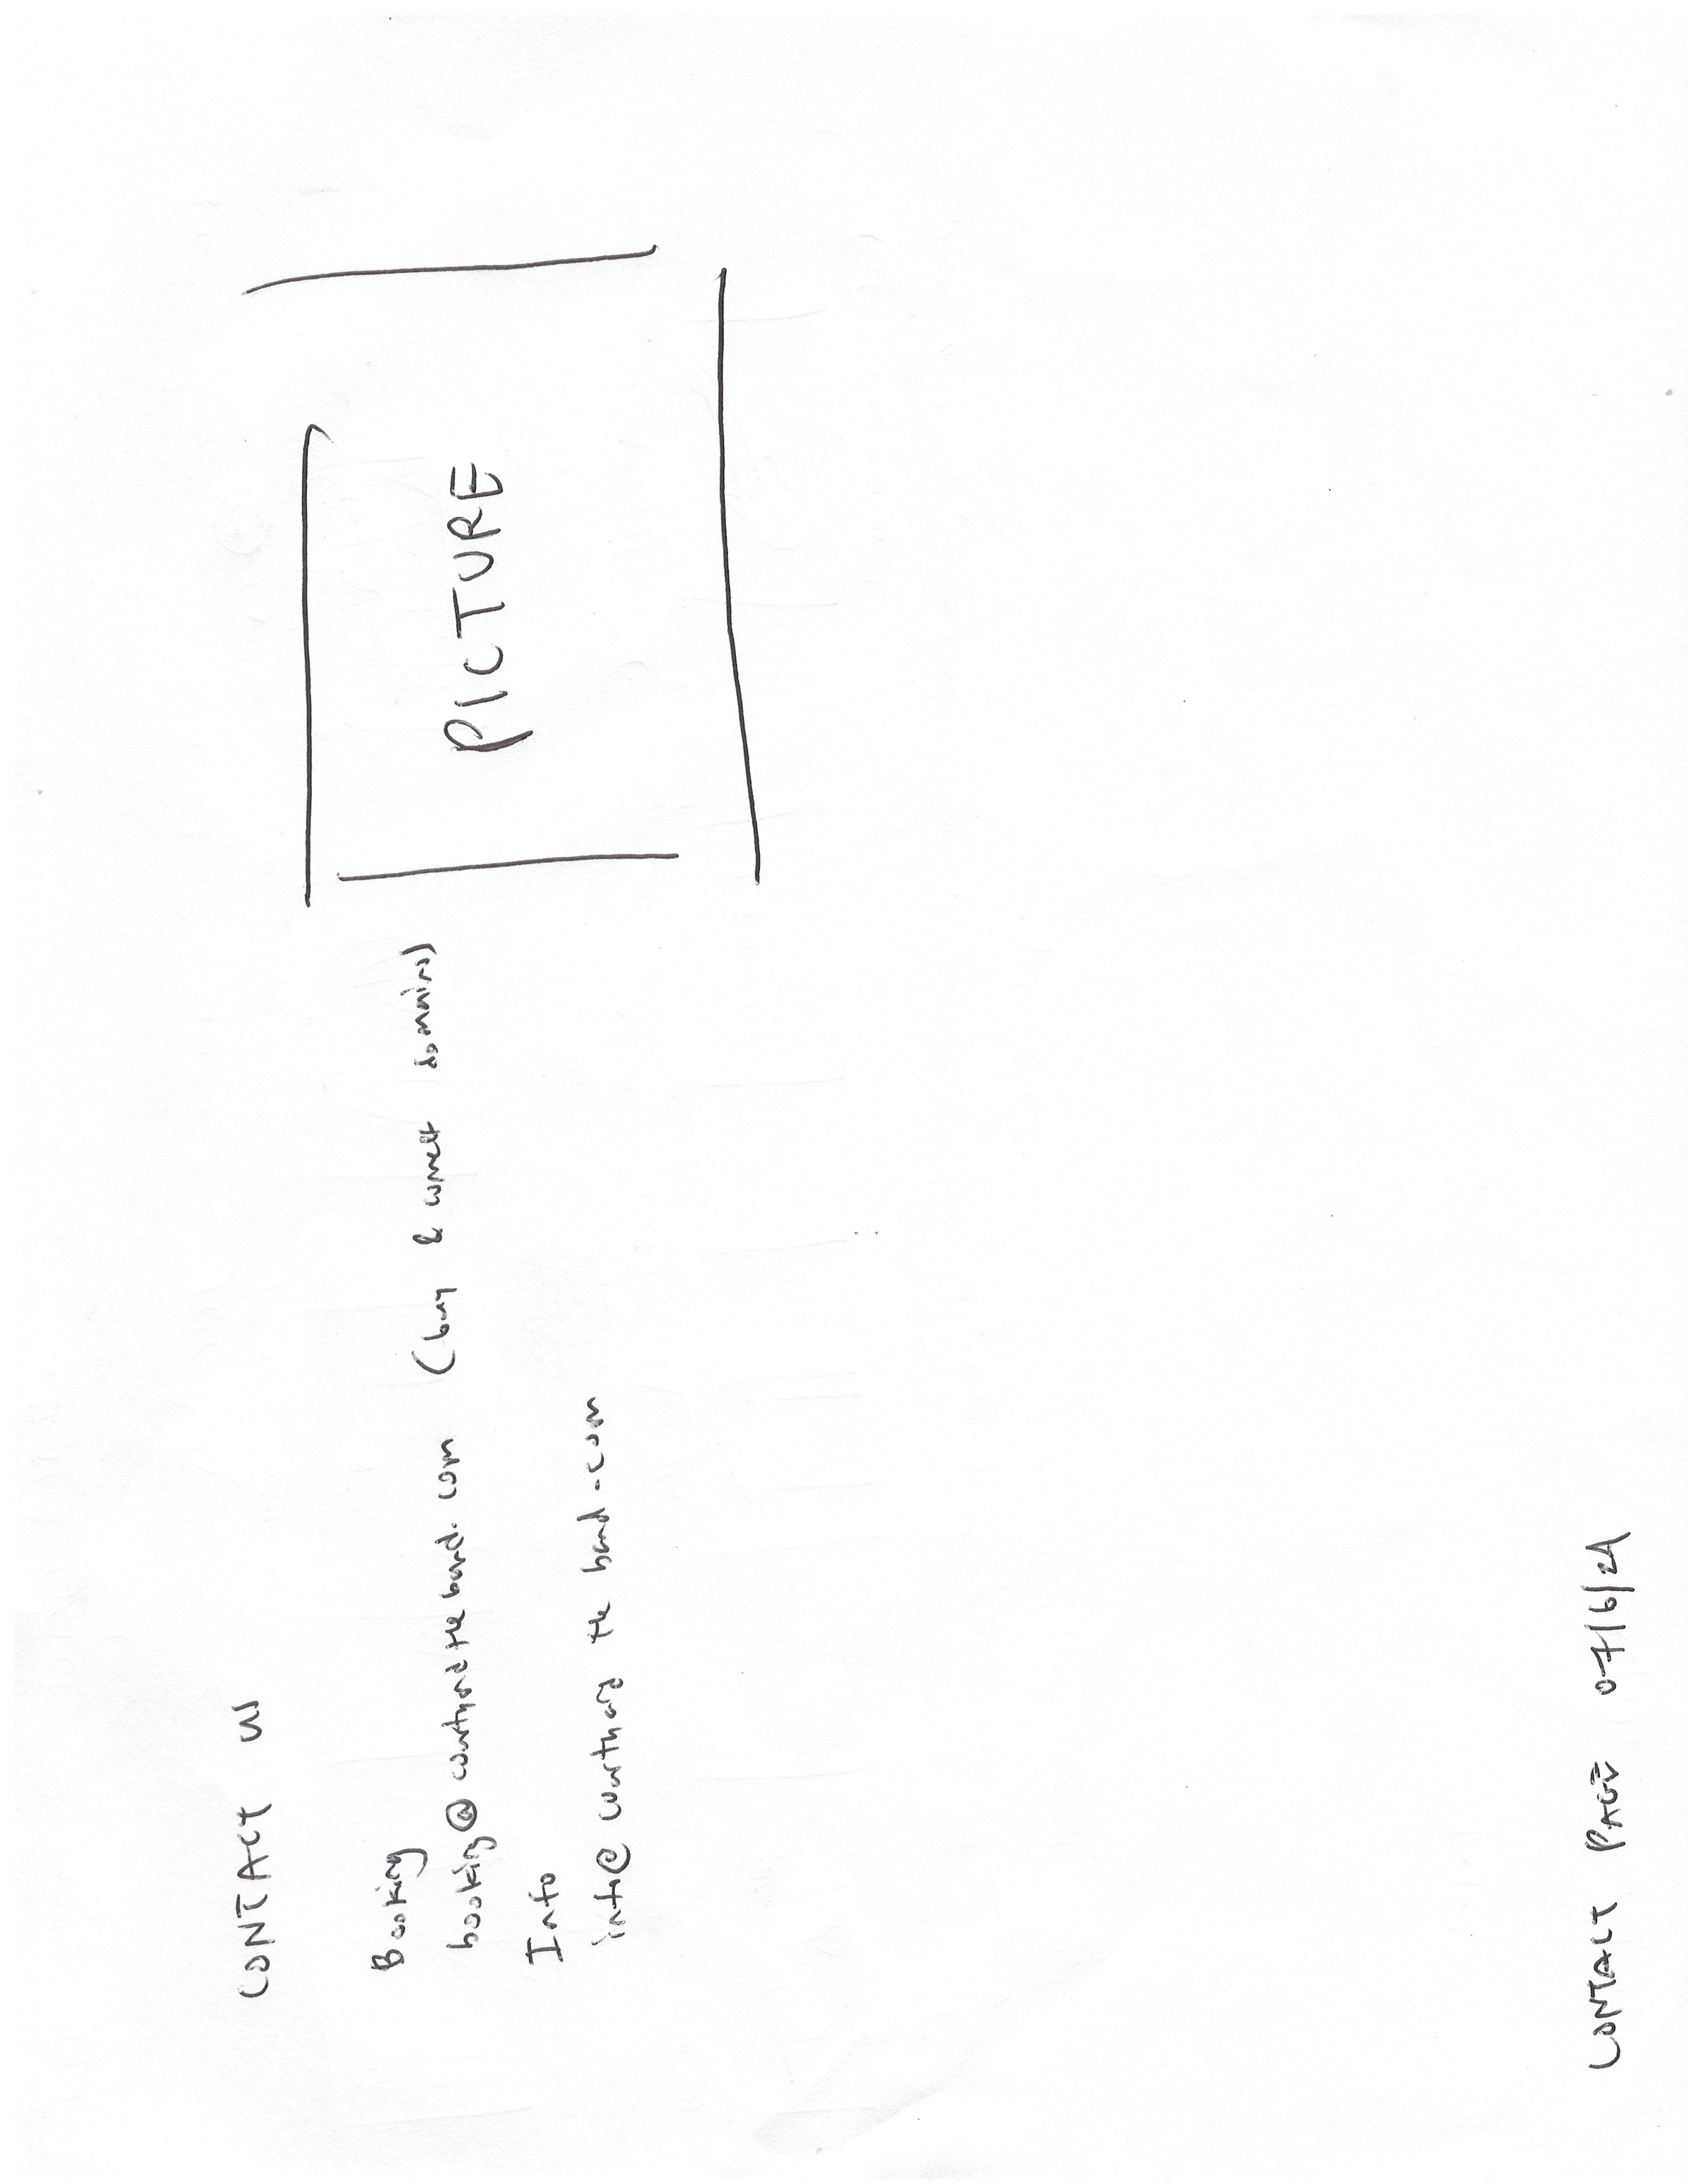 CONTACT US
Booking
booking@courtyardtheband.com (buy & connect domains)
Info
info@courtyard the band.com
PICTURE
CONTACT PAGE 07/6/24